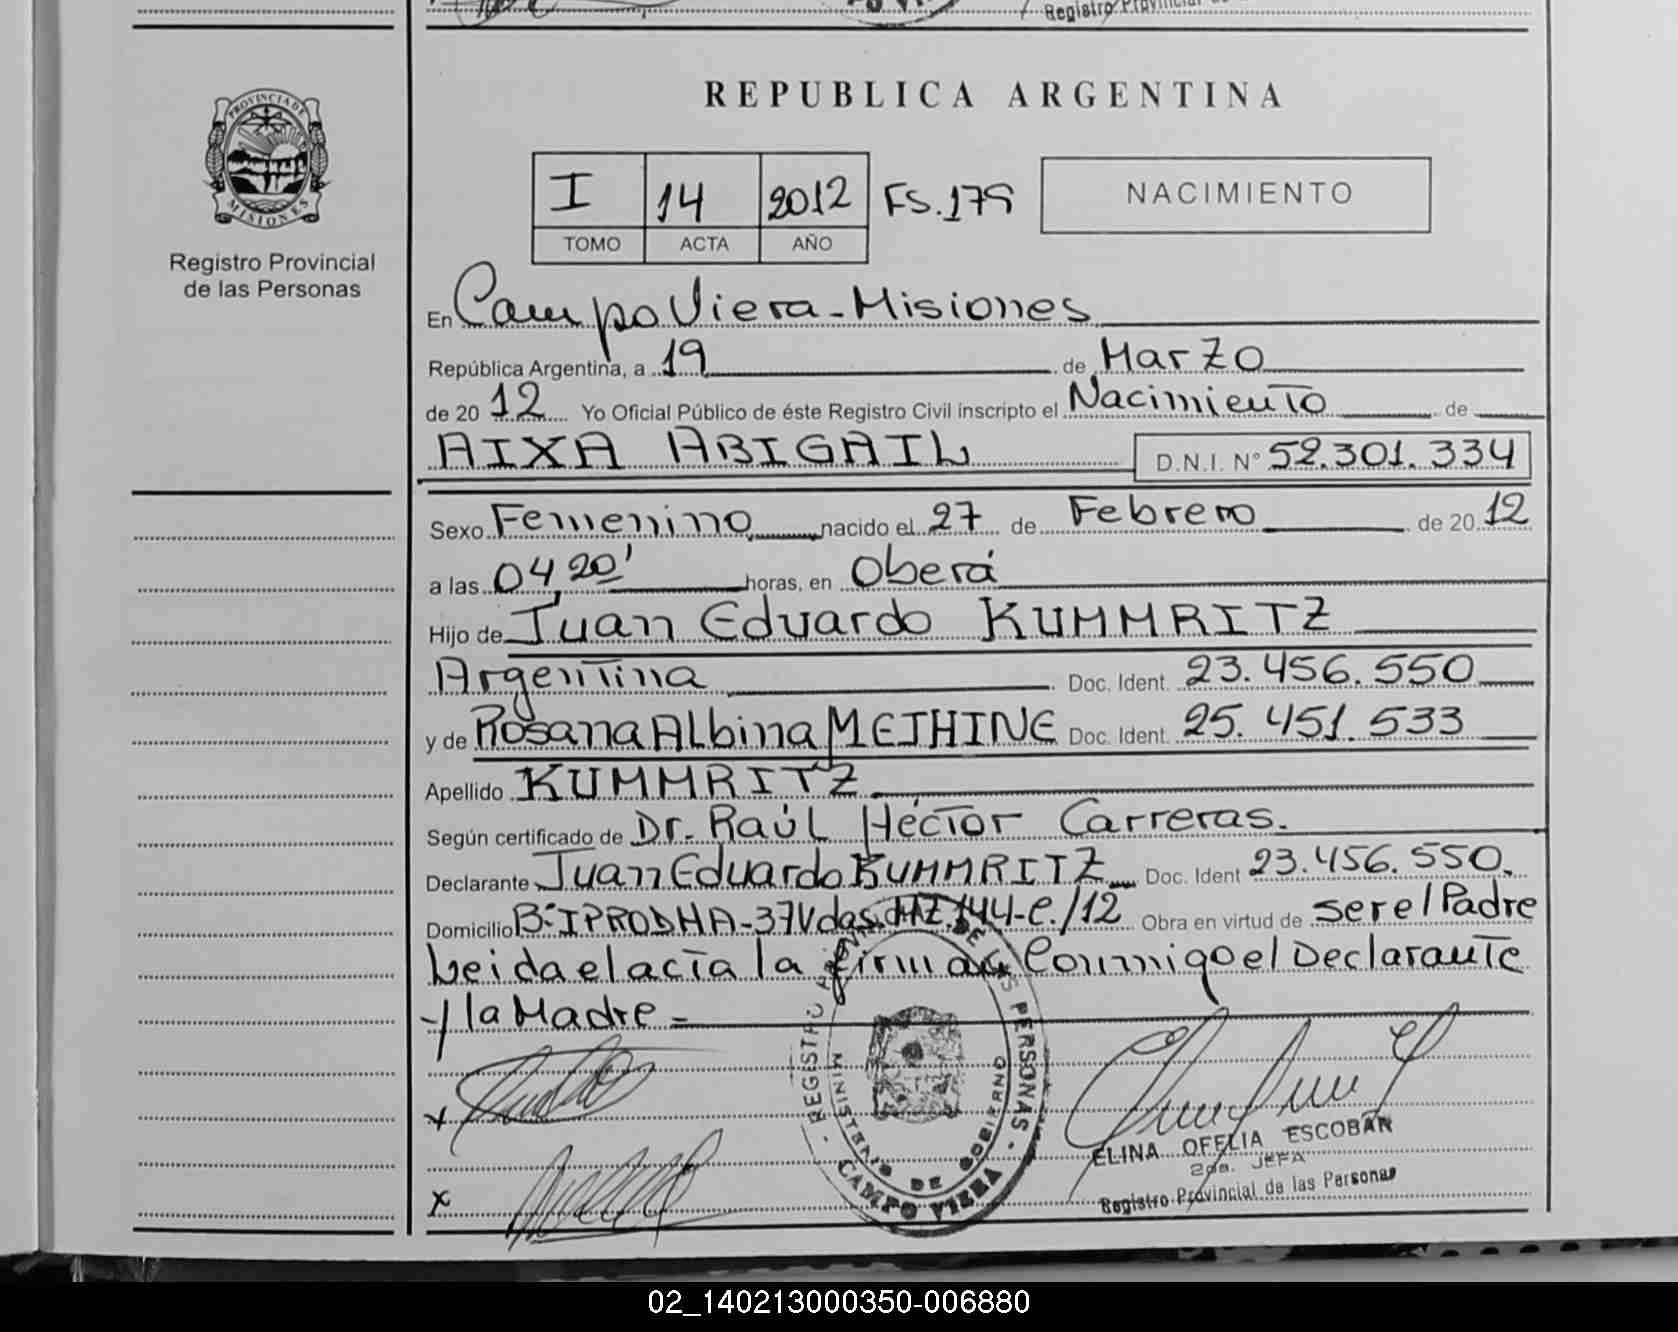 Registro Provincial
PROVINCIA DE
MISIONES
Registro Provincial
de las Personas
REPUBLICA ARGENTINA
I 14 2012 FS.179 NACIMIENTO
TOMO ACTA AÑO
En Campo Viera - Misiones
República Argentina, a 19 de Marzo
de 20 12 Yo Oficial Público de éste Registro Civil inscripto el Nacimiento de
AIXA ABIGAIL D.N.I. N° 52.301.334
Sexo Femenino nacido el 27 de Febrero de 20 12
a las 04,20' horas, en Oberá
Hijo de Juan Eduardo KUMMRITZ
Argentina Doc. Ident. 23.456.550
y de Rosana Albina METHINE Doc. Ident. 25.451.533
Apellido KUMMRITZ
Según certificado de Dr. Raúl Héctor Carreras.
Declarante Juan Eduardo KUMMRITZ Doc. Ident 23.456.550.
Domicilio B° IPRODHA-37Vdas.MZ.144-C./12 Obra en virtud de ser el Padre
Leida el acta la firma Conmigo el Declarante
y la Madre =
x
x
REGISTRO PROVINCIAL DE LAS PERSONAS
MINISTERIO DE GOBIERNO
CAMPO VIERA
ELINA OFELIA ESCOBAR
2da. JEFA
Registro Provincial de las Personas
02_140213000350-006880